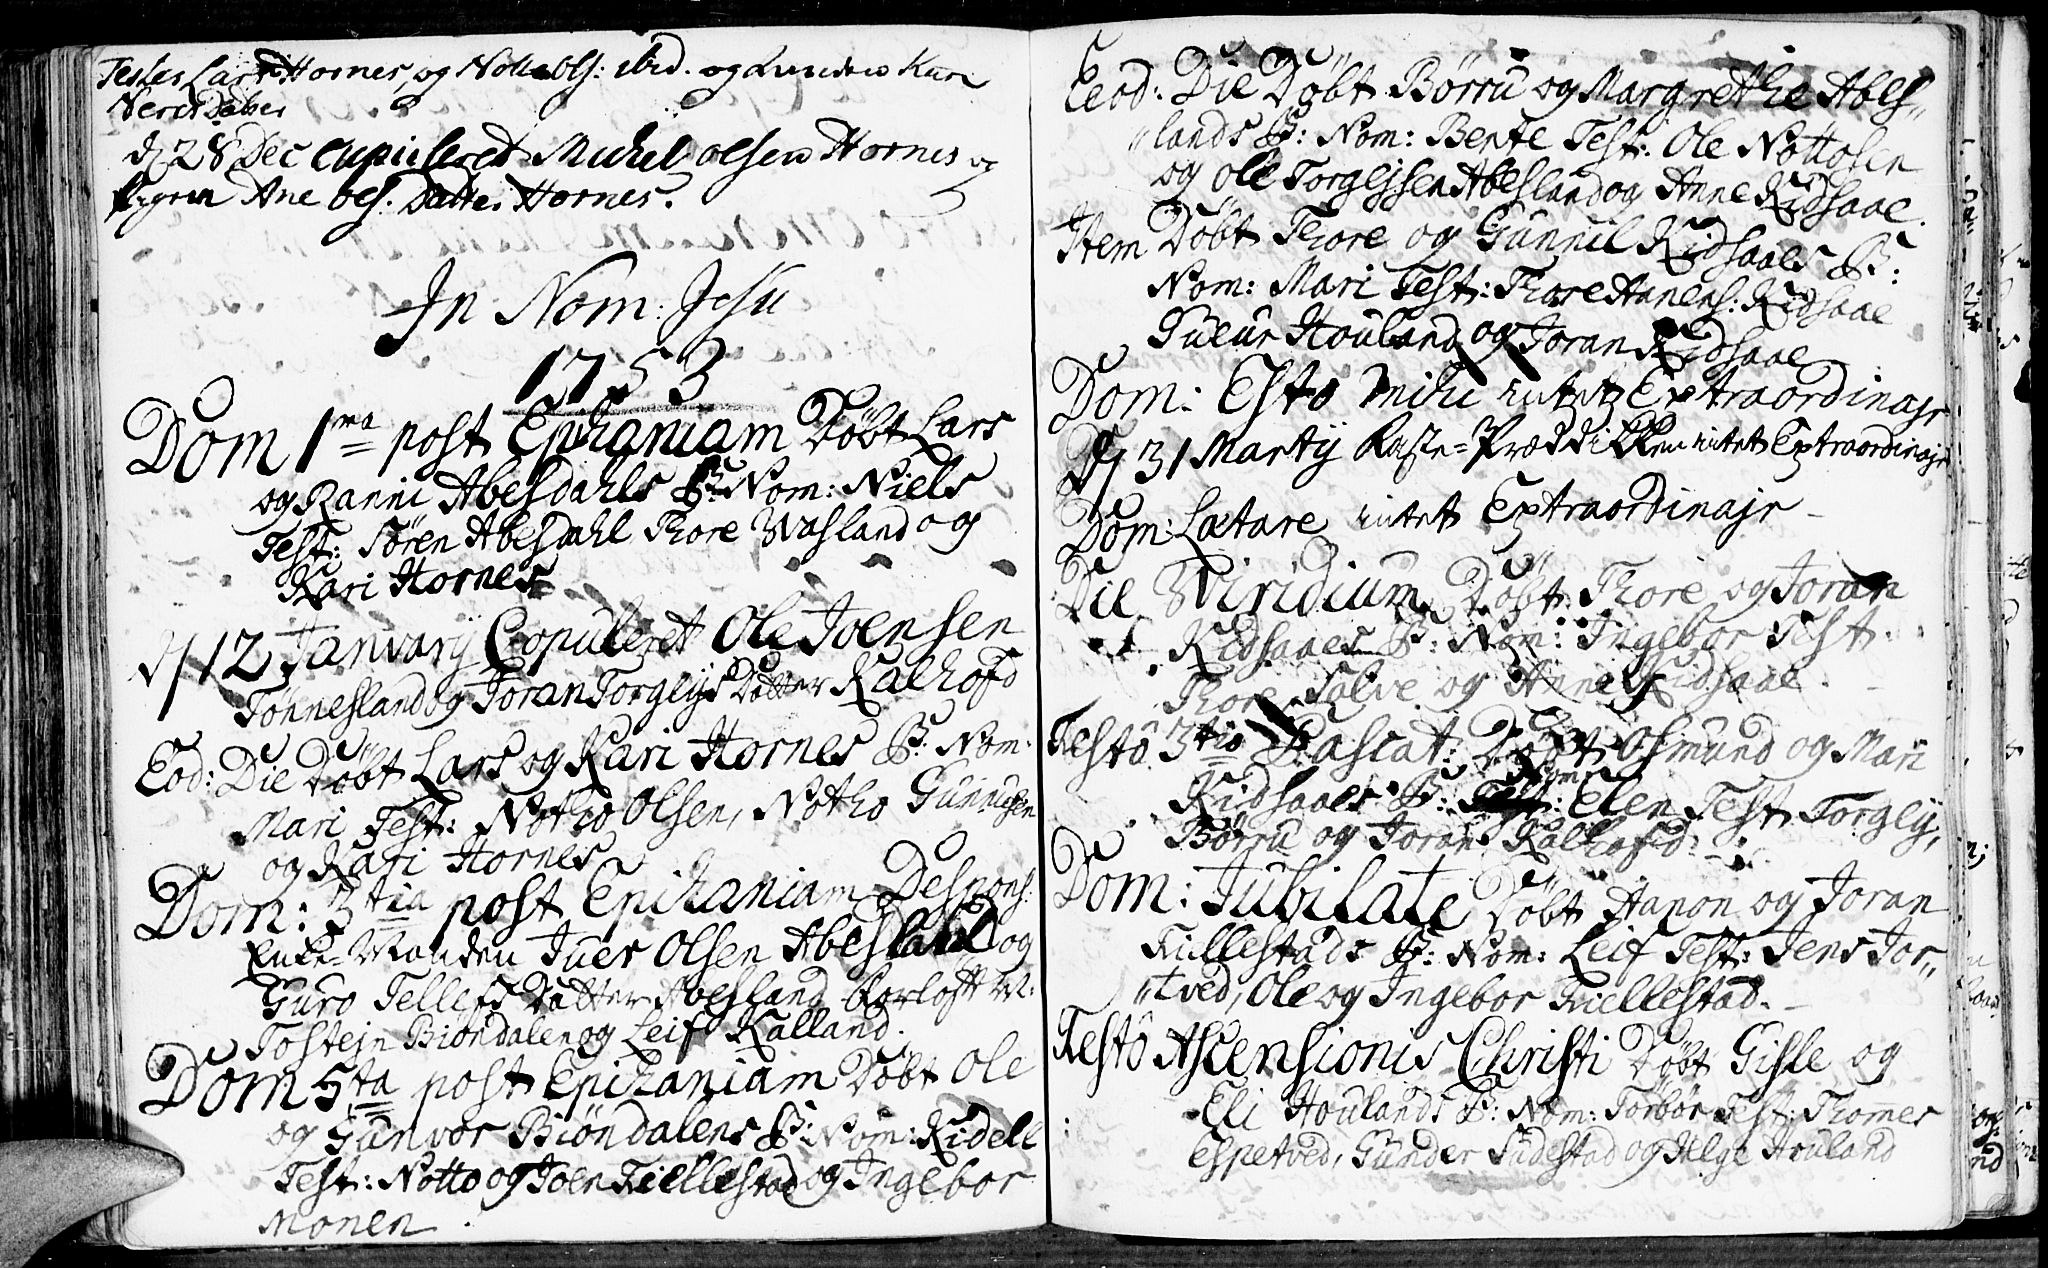 Testes Lars Hornes, og Notto Ols: ibid. og
d 28 Dec Cupuleret Michel Olsen Hornes og
Pigen Ane Ols. Datter Hornes.
In Nom: Jesu
1753
Dom 1ma post Epihaniam Døbt Lars
og Ranni Abesdahls B: Nom: Niels
Test: Søren Abesdahl Thore Wasland og
Kari Hornes
d 12 Januarij Copuleret Ole Joensen
Tønnesland og Joran Torgeijs Datter Kalhofd
Eod: Die Døbt Lars og Kari Hornes B: Nom:
Mari Test: Notho Olsen, Notho Gunnersen
og Kari Hornes
Dom: 3tia post Epihaniam Despons:
Enke-Manden Juer Olsen Abesland og
Guro Tellefs Datter Abesland Forloft M:
Tostejn Biøndalen og Leif Kalland.
Dom 5ta post Epihaniam Døbt Ole
og Gunvor Biøndalens B: Nom: Kidell
Test: Notto og Joen Kiellestad og Ingebor
Monen
Eeod: Die Døbt Børru og Margrethe Abes„
„lands B: Nom: Bente Test: Ole Nottosen
og Ole Torgejsen Abesland og Anne Kidsaae.
Item Døbt Thore og Gunnil Kidsaaes B:
Nom: Mari Test: Thore Hanens: Kidsaae
Guleur Houland og Joran Kidsaae
Dom: Esto Mihi intet Extraordinajr
d 31 Martij Faste-Præddikken intet Extraordinajr
Dom: Lætare intet Extraordinajr
Die Wiridium Døbt: Thore og Joran
Kidsaaes B: Nom: Ingebor Test.
Thore, Salve og Anne Kidsaae.
Festo 3tio Pascat: Døbt Osmund og Mari
Kidsaaes B: Nom: Elen Test Torgeij,
Børru og Joran Kalhofd
Dom: Jubilate Døbt Hanon og Joran
Kiellestads B: Nom: Leif Test: Jens Jor„
„tved, Ole og Ingebor Kiellestad.
Festo Ascensionis Christi Døbt Gisle og
Eli Houlands B: Nom: Torbor Test: Thomes
Espetved, Gunder Sudestad og Helge Houland